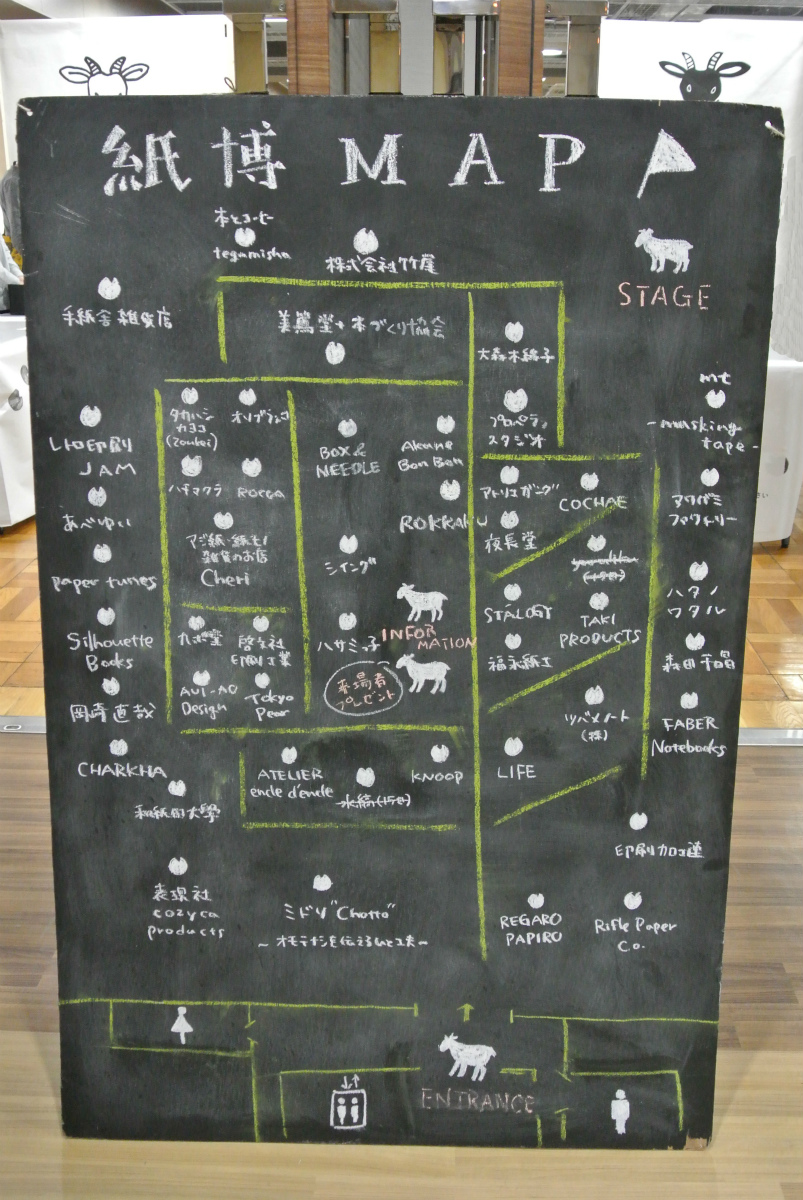 紙博 MAP
本とコーヒー
tegamisha
株式会社竹尾
STAGE
手紙舎 雑貨店
美篶堂+本づくり協会
大森木綿子
mt
-masking
tape-
タカハシ
カヨコ
(Zoukei)
プロペラ
スタジオ
レトロ印刷
JAM
BOX &
NEEDLE
Akane
Bon Bon
ハチマクラ
ROCCA
アトリエガング
COCHAE
アワガミ
ファクトリー
あべゆい
ROKKAKU
アジ紙・紙モノ
雑貨のお店
Cheri
夜長堂
paper tunes
シイング
ハタノ
ワタル
STÁLOGY
TAKI
PRODUCTS
Silhouette
Books
九ポ堂
啓文社
印刷工業
ハサミっ子
INFOR
MATION
福永紙工
来場者
プレゼント
岡崎直哉
AUI-AO
Design
Tokyo
Pear
ツバメノート
(株)
FABER
Notebooks
CHARKHA
ATELIER
encle d'encle
水縞(15日)
KNOOP
LIFE
和紙田大學
印刷加工連
表現社
cozyca
products
ミドリ"Chotto"
~オモテナシを伝えるひと工夫~
REGARO
PAPIRO
Rifle Paper
Co.
ENTRANCE